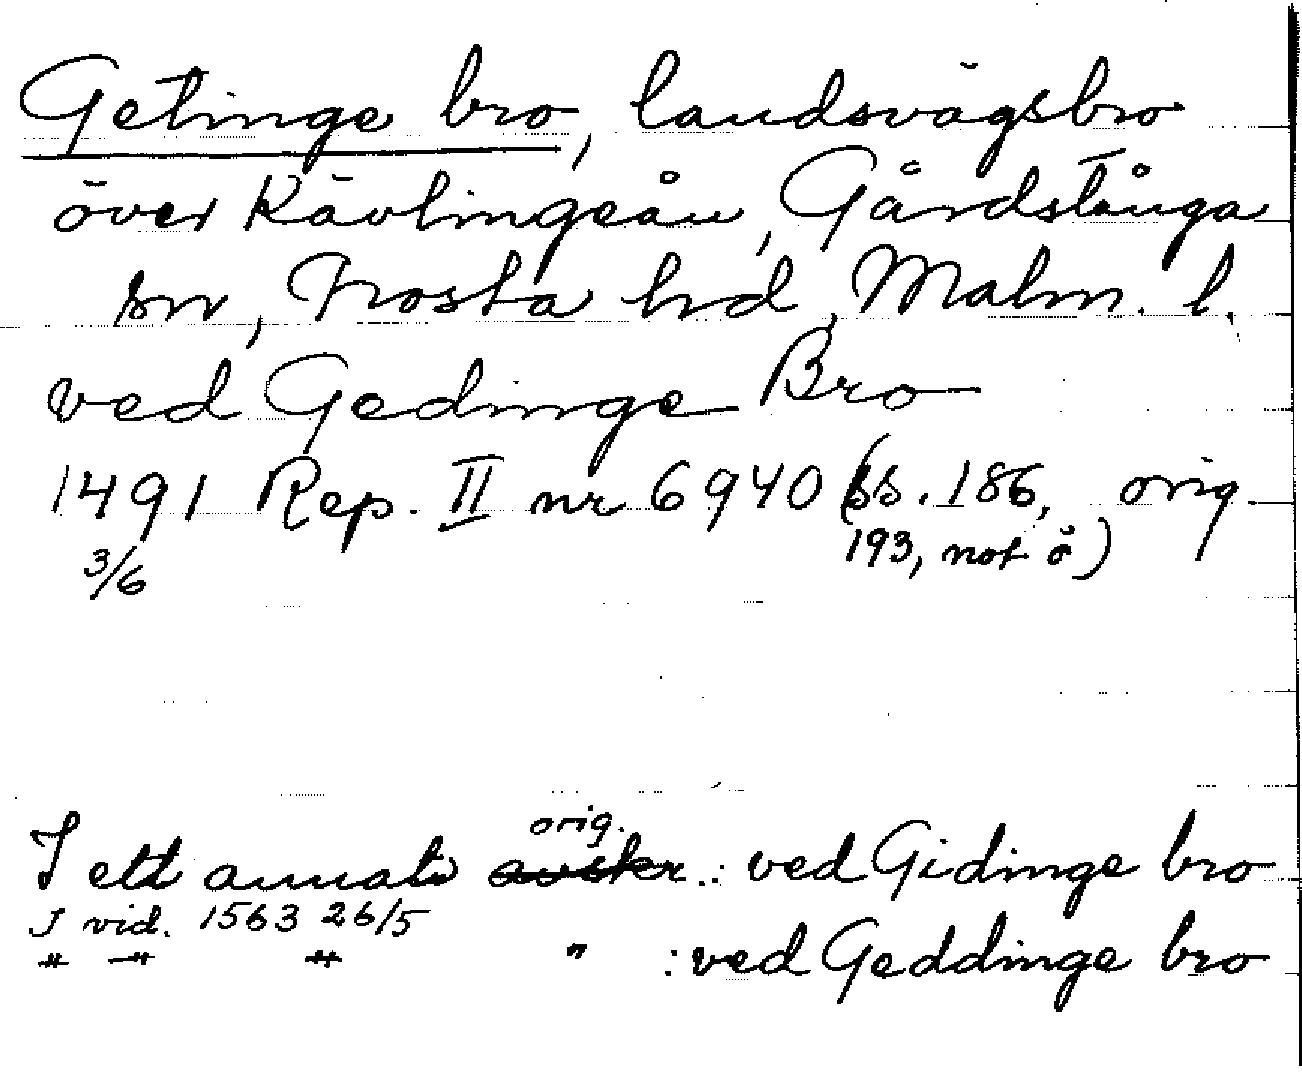 Getinge bro, landsvägsbro
över Kävlingeån, Gårdstånga
sn, Frosta hd, Malm. l.
ved Gedinge Bro
1491 Rep. II nr 6940 (ss. 186, orig.
3/6 193, not ö)
orig.
I ett annat avskr.: ved Gidinge bro
I vid. 1563 26/5
" " " " : ved Geddinge bro